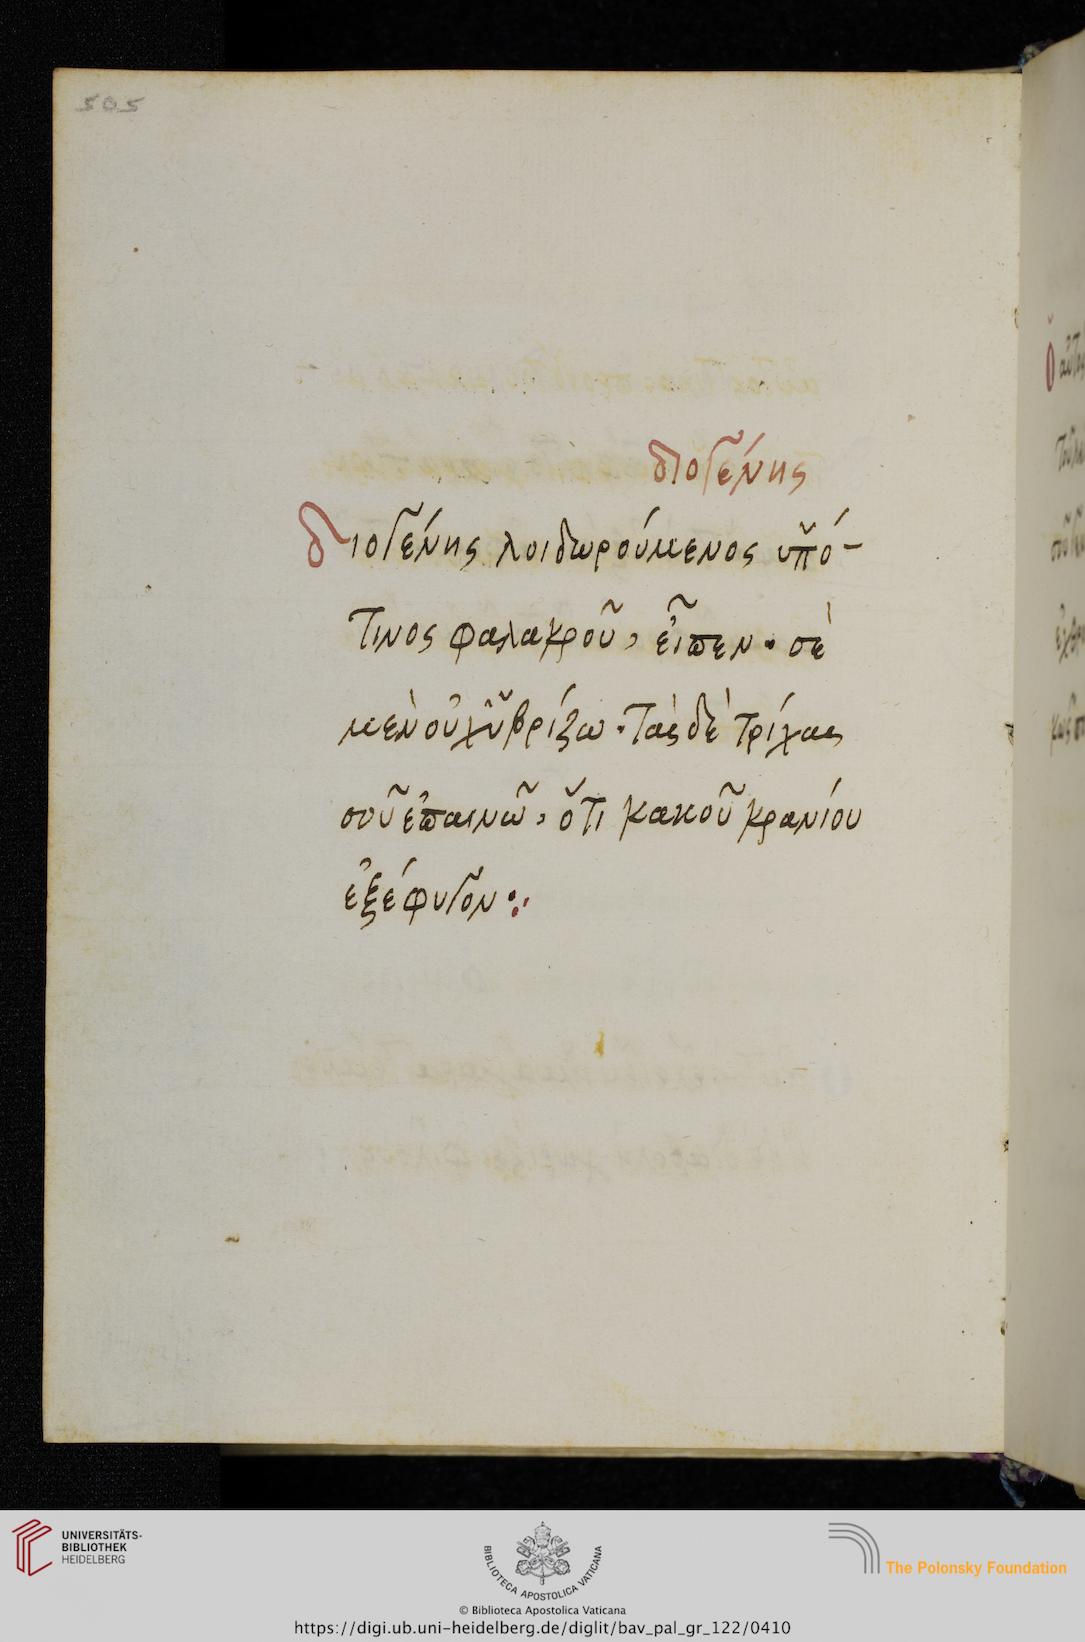 505
διογένης
διογένης λοιδωρούμενος ὑπό-
τινος φαλακροῦ, εἶπεν· σὲ
μὲν οὐχ ὑβρίζω· τὰς δὲ τρίχας
σοῦ ἐπαινῶ, ὅτι κακοῦ κρανίου
ἐξέφυγον:
UNIVERSITÄTS-
BIBLIOTHEK
HEIDELBERG
BIBLIOTECA APOSTOLICA VATICANA
The Polonsky Foundation
© Biblioteca Apostolica Vaticana
https://digi.ub.uni-heidelberg.de/diglit/bav_pal_gr_122/0410